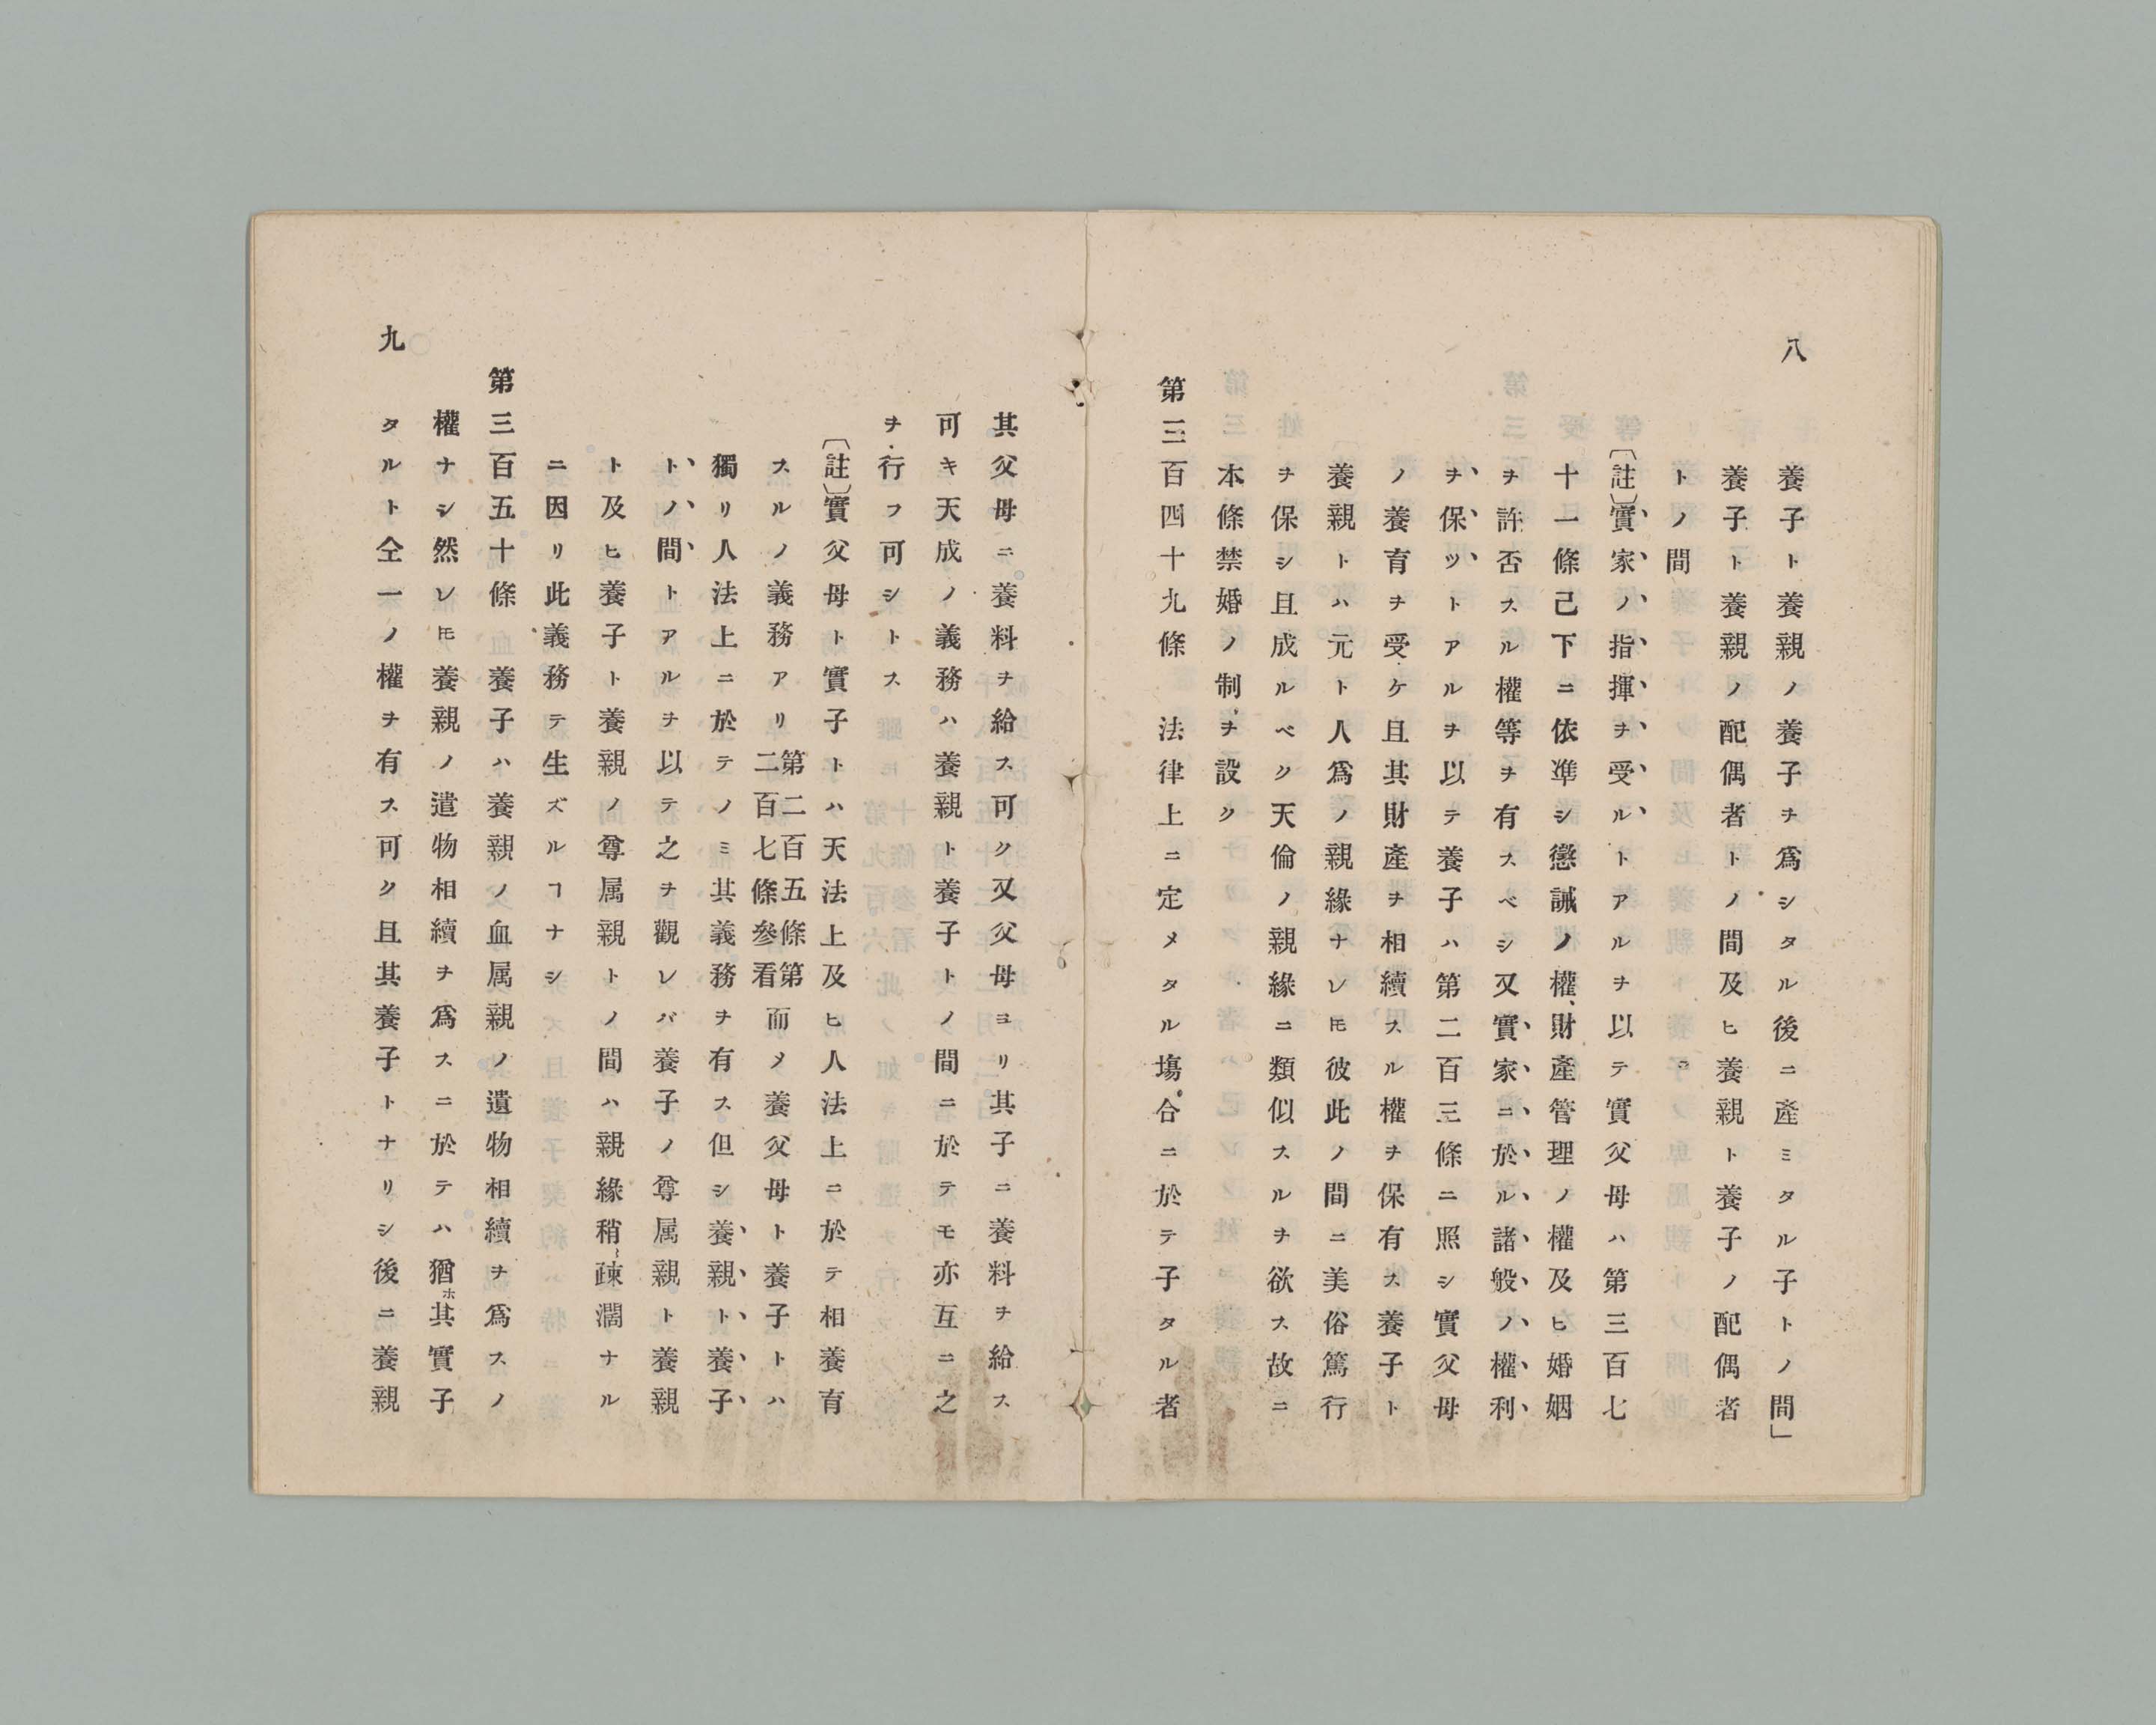 八
養子ト養親ノ養子ヲ爲シタル後ニ產ミタル子トノ間」
養子ト養親ノ配偶者トノ間及ヒ養親ト養子ノ配偶者
トノ間
〔註〕實家ノ指揮ヲ受ルトアルヲ以テ實父母ハ第三百七
十一條己下ニ依凖シ懲誡ノ權、財產管理ノ權及ヒ婚姻
ヲ許否スル權等ヲ有スベシ又實家ニ於ル諸般ノ權利
ヲ保ツトアルヲ以テ養子ハ第二百三條ニ照シ實父母
ノ養育ヲ受ケ且其財產ヲ相續スル權ヲ保有ス養子ト
養親トハ元ト人爲ノ親緣ナレ𪜈彼此ノ間ニ美俗篤行
ヲ保シ且成ルベク天倫ノ親緣ニ類似スルヲ欲ス故ニ
本條禁婚ノ制ヲ設ク
第三百四十九條 法律上ニ定メタル塲合ニ於テ子タル者
其父母ニ養料ヲ給ス可ク又父母ヨリ其子ニ養料ヲ給ス
可キ天成ノ義務ハ養親ト養子トノ間ニ於テモ亦互ニ之
ヲ行フ可シトス
〔註〕實父母ト實子トハ天法上及ヒ人法上ニ於テ相養育
スルノ義務アリ第二百五條第二百七條參看而メ養父母ト養子トハ
獨リ人法上ニ於テノミ其義務ヲ有ス但シ養親ト養子
トノ間トアルヲ以テ之ヲ觀レバ養子ノ尊属親ト養親
ト及ヒ養子ト養親ノ尊属親トノ間ハ親緣稍疎濶ナル
ニ因リ此義務テ生ズルヿナシ
第三百五十條 養子ハ養親ノ血属親ノ遺物相續ヲ爲スノ
權ナシ然レ𪜈養親ノ遺物相續ヲ爲スニ於テハ猶ホ其實子
タルト仝一ノ權ヲ有ス可ク且其養子トナリシ後ニ養親
九